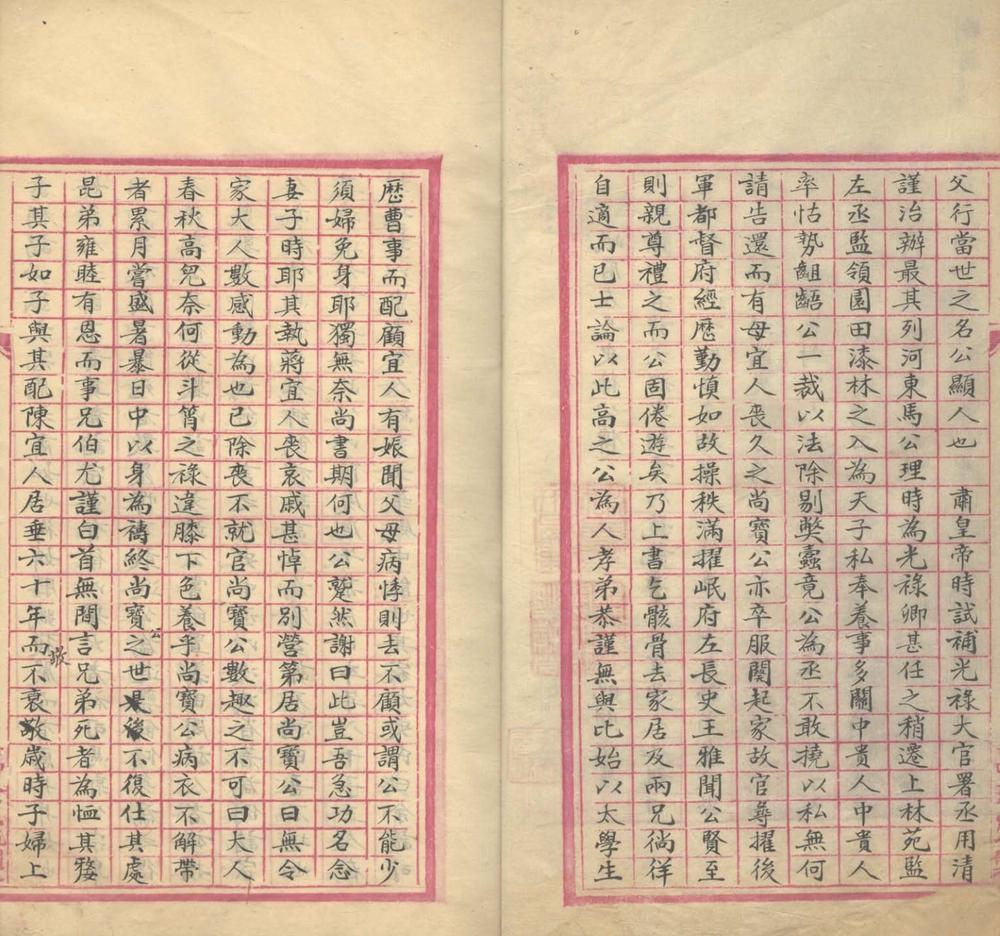 父行當世之名公顯人也　肅皇帝時試補光祿大官署丞用清
謹治辦最其列河東馬公理時為光祿卿甚任之稍遷上林苑監
左丞監領園田漆林之入為天子私奉養事多關中貴人中貴人
率怙勢齟齬公一裁以法除剔獘蠧竟公為丞不敢撓以私無何
請告還而有母宜人喪久之尚寶公亦卒服闋起家故官尋擢後
軍都督府經歷勤慎如故操秩滿擢岷府左長史王雅聞公賢至
則親尊禮之而公固倦遊矣乃上書乞骸骨去家居及兩兄徜徉
自適而已士論以此高之公為人孝弟恭謹無與比始以太學生
歷曹事而配顧宜人有娠聞父母病悸則去不顧或謂公不能少
須婦免身耶獨無奈尚書期何也公蹵然謝曰此豈吾急功名念
妻子時耶其執蔣宜人喪哀戚甚悼而別營第居尚寶公曰無令
家大人數感動為也已除喪不就官尚寶公數趣之不可曰大人
春秋高兒奈何從斗筲之祿違膝下色養乎尚寶公病衣不解帶
者累月嘗盛暑暴日中以身為禱終尚寶公之世後不復仕其處
昆弟雍睦有恩而事兄伯尤謹白首無間言兄弟死者為恤其嫠
子其子如子與其配陳宜人居垂六十年而不衰敬歲時子婦上